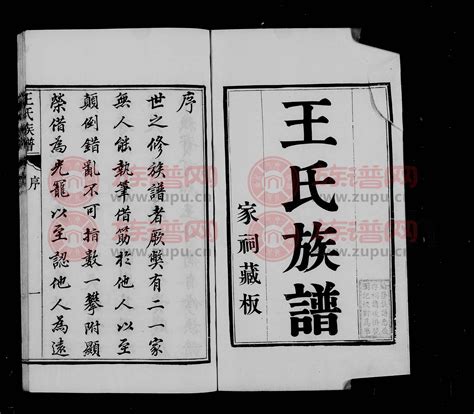 王氏族譜
家祠藏板
序
世之修族譜者厥獘有二一家
無人能執筆借笏於人以至
顛倒錯亂不可指數一攀附顯
榮借為光寵以至認他人為遠
王氏族譜
序
族譜网
www.zupu.cn
族譜网
www.zupu.cn
族譜网
www.zupu.cn